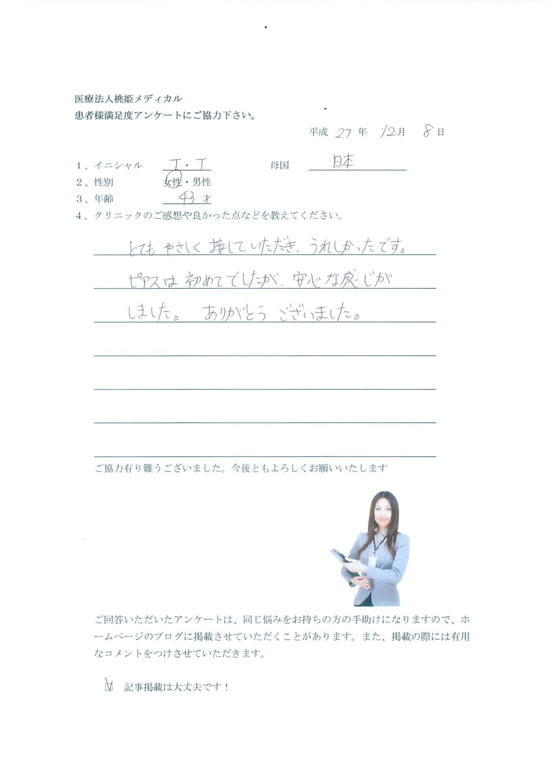 医療法人桃姫メディカル
患者様満足度アンケートにご協力下さい。
平成 27 年 12月 8日
1、イニシャル T・T 母国 日本
2、性別 女性・男性
3、年齢 43 才
4、クリニックのご感想や良かった点などを教えてください。
とてもやさしく接していただき、うれしかったです。
ピアスは初めてでしたが、安心な感じが
しました。 ありがとう ございました。
ご協力有り難うございました。今後ともよろしくお願いいたします
ご回答いただいたアンケートは、同じ悩みをお持ちの方の手助けになりますので、ホ
ームページのブログに掲載させていただくことがあります。また、掲載の際には有用
なコメントをつけさせていただきます。
記事掲載は大丈夫です！